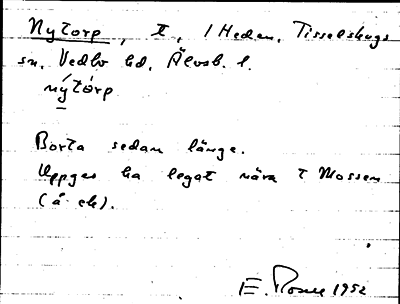 Nytorp, t, I Heden, Tisselskogs
sn, Vedbo hd, Älvsb. l.
nýtórp
Borta sedan länge.
Uppges ha legat nära t Mossen
(å ek).
E. Rosell 1952